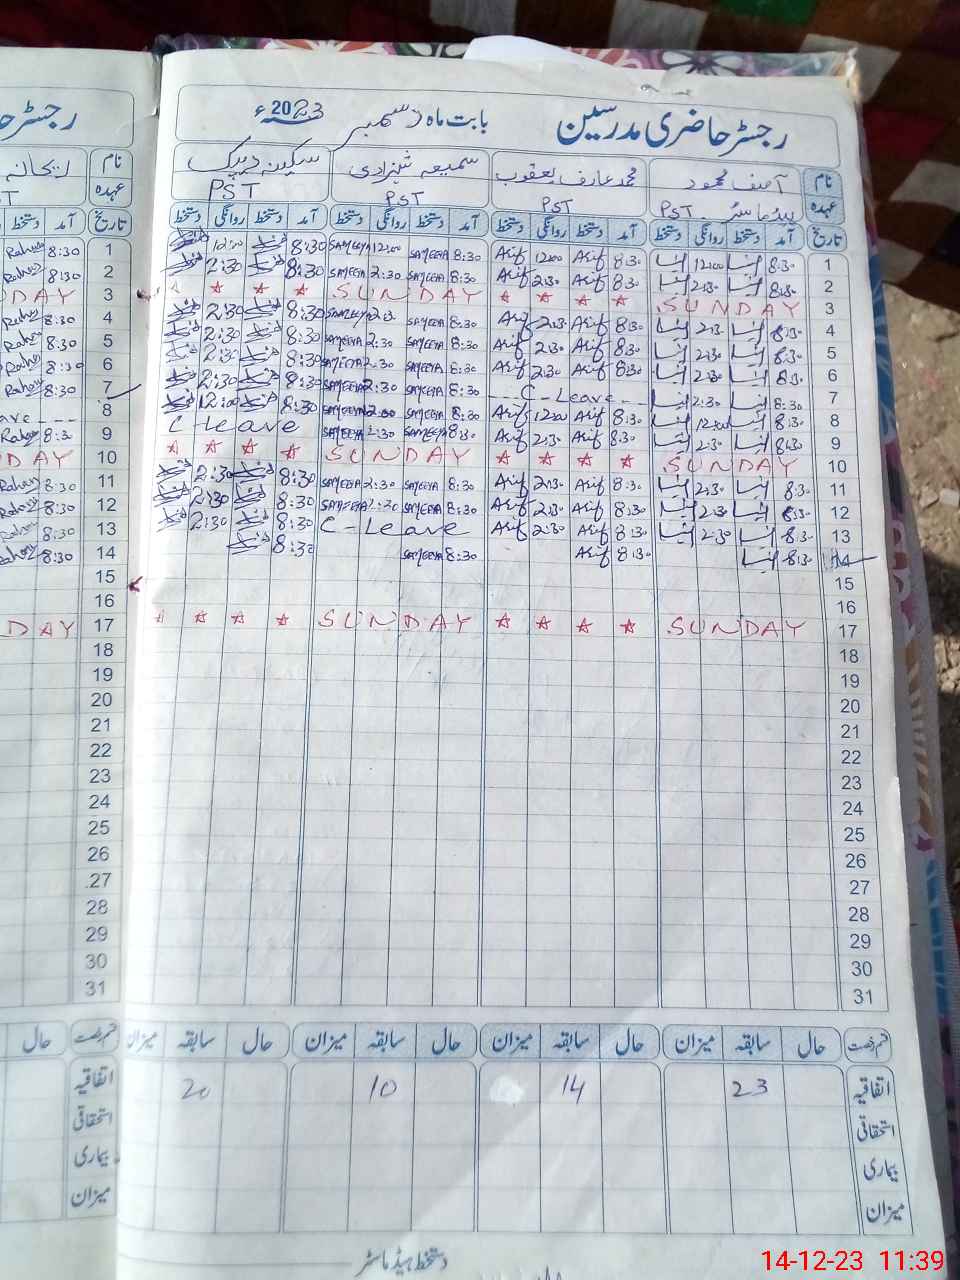 رجسٹر حاضری مدرسین بابت ماہ دسمبر 2023ء
نام آصف محمود محمد عارف یعقوب سمیعہ شہزادی سکینہ
عہدہ ہیڈماسٹر PST PST PST PST
تاریخ آمد دستخط روانگی دستخط آمد دستخط روانگی دستخط آمد دستخط روانگی دستخط آمد دستخط روانگی دستخط
1 8:30 12:00 8:30 Asif 12:00 Asif 8:30 SAMEEYA 12:00 SAMEEYA 8:30 12:00
2 8:30 2:30 8:30 Asif 2:30 Asif 8:30 SAMEEYA 2:30 SAMEEYA 8:30 2:30
3 SUNDAY ☆ ☆ ☆ ☆ SUNDAY ☆ ☆ ☆ ☆
4 8:30 2:30 8:30 Asif 2:30 Asif 8:30 SAMEEYA 2:30 SAMEEYA 8:30 2:30
5 8:30 2:30 8:30 Asif 2:30 Asif 8:30 SAMEEYA 2:30 SAMEEYA 8:30 2:30
6 8:30 2:30 8:30 Asif 2:30 Asif 8:30 SAMEEYA 2:30 SAMEEYA 8:30 2:30
7 8:30 2:30 C-Leave 8:30 SAMEEYA 2:30 SAMEEYA 8:30 2:30
8 8:30 12:00 8:30 Asif 12:00 Asif 8:30 SAMEEYA 12:00 SAMEEYA 8:30 12:00
9 8:30 2:30 8:30 Asif 2:30 Asif 8:30 SAMEEYA 2:30 SAMEEYA C Leave
10 SUNDAY ☆ ☆ ☆ ☆ SUNDAY ☆ ☆ ☆ ☆
11 8:30 2:30 8:30 Asif 2:30 Asif 8:30 SAMEEYA 2:30 SAMEEYA 8:30 2:30
12 8:30 2:30 8:30 Asif 2:30 Asif 8:30 SAMEEYA 2:30 SAMEEYA 8:30 2:30
13 8:30 2:30 8:30 Asif 2:30 Asif C-Leave 8:30 2:30
14 8:30 8:30 Asif 8:30 SAMEEYA 8:30
15
16
17 SUNDAY ☆ ☆ ☆ ☆ SUNDAY ☆ ☆ ☆ ☆
18
19
20
21
22
23
24
25
26
27
28
29
30
31
قسم رخصت حال سابقہ میزان حال سابقہ میزان حال سابقہ میزان حال سابقہ میزان
اتفاقیہ 23 14 10 20
استحقاقی
بیماری
میزان
دستخط ہیڈ ماسٹر
رجسٹر
نام
عہدہ
تاریخ آمد
1 8:30
2 8:30
3 DAY
4 8:30
5 8:30
6 8:30
7 8:30
8
9 8:30
10 DAY
11 8:30
12 8:30
13 8:30
14 8:30
15
16
17 DAY
18
19
20
21
22
23
24
25
26
27
28
29
30
31
قسم رخصت حال
اتفاقیہ
استحقاقی
بیماری
میزان
14-12-23 11:39